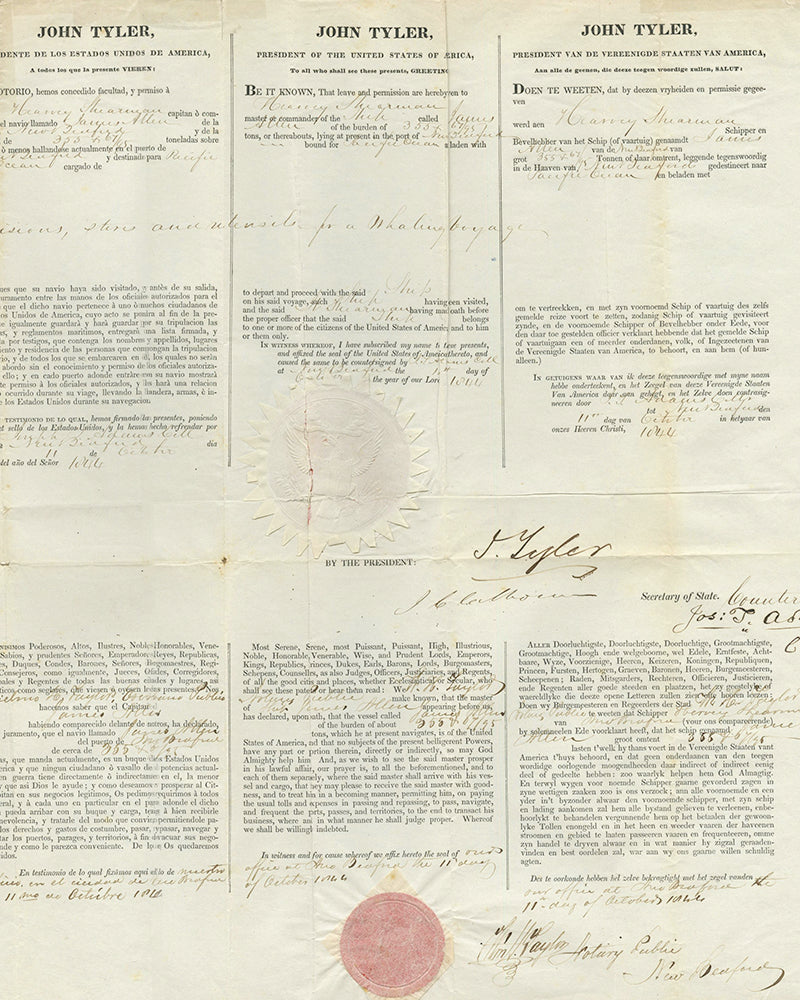 JOHN TYLER,
DENTE DE LOS ESTADOS UNIDOS DE AMERICA,
A todos los que la presente VIEREN:
OTORIO, hemos concedido facultad, y permiso á
Hearvey Shearman
capitan ó com-
el navio llamado James Allen de la
New Bedford y de la
de 355 67/95 toneladas sobre
ó menos hallandose actualmente en el puerto de
New Bedford y destinado para Pacific
Ocean cargado de
JOHN TYLER,
PRESIDENT OF THE UNITED STATES OF AMERICA,
To all who shall see these presents, GREETING
BE IT KNOWN, That leave and permission are hereby given to
Hearvey Shearman
master or commander of the Ship called James
Allen of the burden of 355 67/95
tons, or thereabouts, lying at present in the port of New Bedford
bound for Pacific Ocean laden with
JOHN TYLER,
PRESIDENT VAN DE VEREENIGDE STAATEN VAN AMERICA,
Aan alle de geenen, die deeze teegen woordige zullen, SALUT:
DOEN TE WEETEN, dat by deezen vryheiden en permissie gegee-
ven
werd aen Hearvey Shearman
Schipper en
Bevelhebber van het Schip (of vaartuig) genaamdt James
Allen van de New Bedford van
grot 355 67/95 Tonnen of daar omtrent, leggende tegenswoordig
in de Haaven van New Bedford gedestineert naar
Pacific Ocean en beladen met
visions, stores and utensils for a Whaling voyage
ues que su navio haya sido visitado, y antès de su salida,
uramento entre las manos de los oficiales autorizados para el
que el dicho navio pertenece à uno ò muchos ciudadanos de
os Unidos de America, cuyo acto se ponira al fin de la pre-
e igualmente guardará y hará guardar por su tripulation las
s, y reglumentos maritimos, entregará una lista firmada, y
la por testigos, que contenga los nombres y appellidos, lugares
iento y residencia de las personas que compongan la tripulatio
o, y de todos los que se embarcaren en él, los quales no serán
abordo sin el conocimiento y permiso de los oficiales autoriza-
ello; y en cada puerto adonde entrare con su navio mostrará
te permiso à los oficiales autorizados, y les hará una relacion
o ocurrido durante su viage, llevando la bandera, armas, è in-
e los Estados Unidos durante su navegacion.
TESTIMONIO DE LO QUAL, hemos firmado la presentes, poniendo
el sello de los Estados-Unidos, y la hemos hecho refrendar por
Joseph T. Adams Coll
New Bedford dia
11 de Octobre
del año del Señor 1844
to depart and proceed with the said Ship
on his said voyage, such Ship having been visited,
and the said H Shearman having made oath before
the proper officer that the said Ship belongs
to one or more of the citizens of the United States of America and to him
or them only.
IN WITNESS WHEREOF, I have subscribed my name to these presents,
and affixed the seal of the United States of America thereto, and
caused the same to be countersigned by
at New Bedford the 11th day of
October the year of our Lord 1844
om te vertreckken, en met zyn voornoemd Schip of vaartuig des zelfs
gemelde reize voort te zetten, zodanig Schip of vaartuig gevisiteert
zynde, en de voornoemde Schipper of Bevelhebber onder Eede, voor
den daar toe gestelden officier verklaart hebbende dat het gemelde Schip
of vaartuigaan een of meerder onderdanen, volk, of Ingezetenen van
de Vereenigde Staaten van America, to behoort, en aan hem (of hun-
alleen.)
IN GETUIGENS WAAR van ik deeze teigenswoordige met myne naam
hebbe onderteekent, en het Zeegel van deeze Vereenigde Staaten
Van America daar aan gehegt, en het Zelve doen contrasig-
neeren door Adams Coll
tot New Bedford den
11th dag van October in het jaar van
onzes Heeren Christi, 1844
BY THE PRESIDENT:
J. Tyler
J C Calhoun
Secretary of State.
Counter
Jos: T. Ad
C
NISIMOS Poderosos, Altos, Ilustres, Nobles Honorables, Vene-
Sabios, y prudentes Señores, Emperadores Reyes, Republicas,
es, Duques, Condes, Barones, Señores, Begomaestres, Regi-
Consejeros, como igualmente, Jueces, Ofidas, Corregidores,
oales y Regentes de todas las buenas ciudades y lugares,
ticos como seglares, que viesen ó oyesen leer presentes. Nos
Notario Publico
hacemos saber que el Capitan
James Allen
habiendo comparecido delante de notros, ha declarado,
juramento, que el navio llamado James Allen
del puerto de New Bedford
de cerca de 355 67/95
as, que manda actualmente, es un buque de os Estados Unidos
erica y que ningun ciudadano ó vasallo de potencias actual-
en guerra tiene directamente ó indirectamente en el, la menor
y que asi Dios le ayude; y como deseamos prosperar al Cit-
pitan en sus negocios legitimos. Os pedimos requirimos à todos
eral, y à cada uno en particular en el para adonde el dicho
n pueda arribar con su buque y carga, tengá bien recibirle
nevolencia, y tratarle del modo que conviene permitiendole pa-
los derechos y gastos de costumbre, pasar, ypasar, navegar y
tar los puertos, parages, y territorios, à fin devacuar sus nego-
nde y como le parezca conveniente. De lo qe Os quedaremos
cidos.
En testimonio de lo qual fixamos aqui el sello de nuestro
oficio, en el ciudad de New Bedford
11 mo de Octubre 1844
Most Serene, Serene, most Puissant, Puissant, High, Illustrious,
Noble, Honorable, Venerable, Wise, and Prudent Lords, Emperors,
Kings, Republics, Princes, Dukes, Earls, Barons, Lords, Burgomasters,
Schepens, Counsellors, as also Judges, Officers, Justiciaries, and Regents,
of all the good cities and places, whether Ecclesiastical or Secular, who
shall see these patents or hear them read: We Wm W. Taylor
Notary Public make known, that the master
of Ship James Allen appearing before us,
has declared, upon oath, that the vessel called James Allen
of the burden of about 355 67/95
tons, which he at present navigates, is of the United
States of America, and that no subjects of the present belligerent Powers,
have any part or portion therein, directly or indirectly, so may God
Almighty help him And, as we wish to see the said master prosper
in his lawful affair, our prayer is, to all the beforementioned, and to
each of them separately, where the said master shall arrive with his ves-
sel and cargo, that they may please to receive the said master with good-
ness, and to treat him in a becoming manner, permitting him, on paying
the usual tolls and expenses in passing and repassing, to pass, navigate,
and frequent the ports, passes, and territories, to the end to transact his
business, where and in what manner he shall judge proper. Whereof
we shall be willingly indebted.
In witness and for cause whereof we affix hereto the seal of our
office at New Bedford the 11th day
of October 1844
ALLER Doorluchtigste, Doorluchtige, Grootmachtigste,
Grootmachtige, Hoogh ende welgeboorne, wel Edele, Erntfeste, Acht-
baare, Wyze, Voorzienige, Heeren, Keizeren, Koningen, Republiquen,
Princen, Fursten, Hertogen, Graeven, Baronen, Heeren, Burgemeesteren,
Scheepenen; Raden, Mitsgarders, Rechteren, Officieren, Justicieren,
ende Regenten aller goede steeden en plaatzen, het zy geestelyke of
waereldlyke die deeze opene Letteren zullen zien ofte hooren leezen:
Doen wy Burgemeesteren en Regeerders der Stad Wm W Taylor
Notary Public te weeten dat Schipper Hearvey Shearman
van New Bedford (voor ons compareerende)
by solemneelen Ede voorklaart heeft, dat het schip genaamd James
Allen groot omtent 355 67/95
lasten t'welk hy thans voert in de Vereenigde Staaten vant
America t'huys behoord, en dat geen onderdaanen van den tegen
wordige oorlogende mogendheeden daar in direct of indirect eenig
deel of gedeelte hebben: zoo waarlyk helpen hem God Almagtig.
En terwyl wygen voor noemen Schipper gaarne gevorderd zagen in
zyne wettige aanzaken zoo is ons verzoek; ann alle voornoemde en een
yder in't byzonder alwaar den voornoemde schipper, met zyn schip
en lading aankomen zal hem alle bystand gelieven te verleenen, enbe-
hoorlykt te behandelen vergunnende hem op het betaalen der gewoon-
lyke Tollen onengeld en in het heen en weeder vaaren der havenen
stroomen en gebiet te laaten passeeren vaaren en frequenteeren, omme
zyn handel te dryven alwaar en in wat manier by zigzal geraden-
vinden en best oordelen zal, war aan wy ons gaarne willen schuldig
agten.
Des te oorkonde hebben hel zelve bekragtigt met het zegel vanden
our office at New Bedford the
11th day of October 1844
Wm W Taylor Notary Public
New Bedford